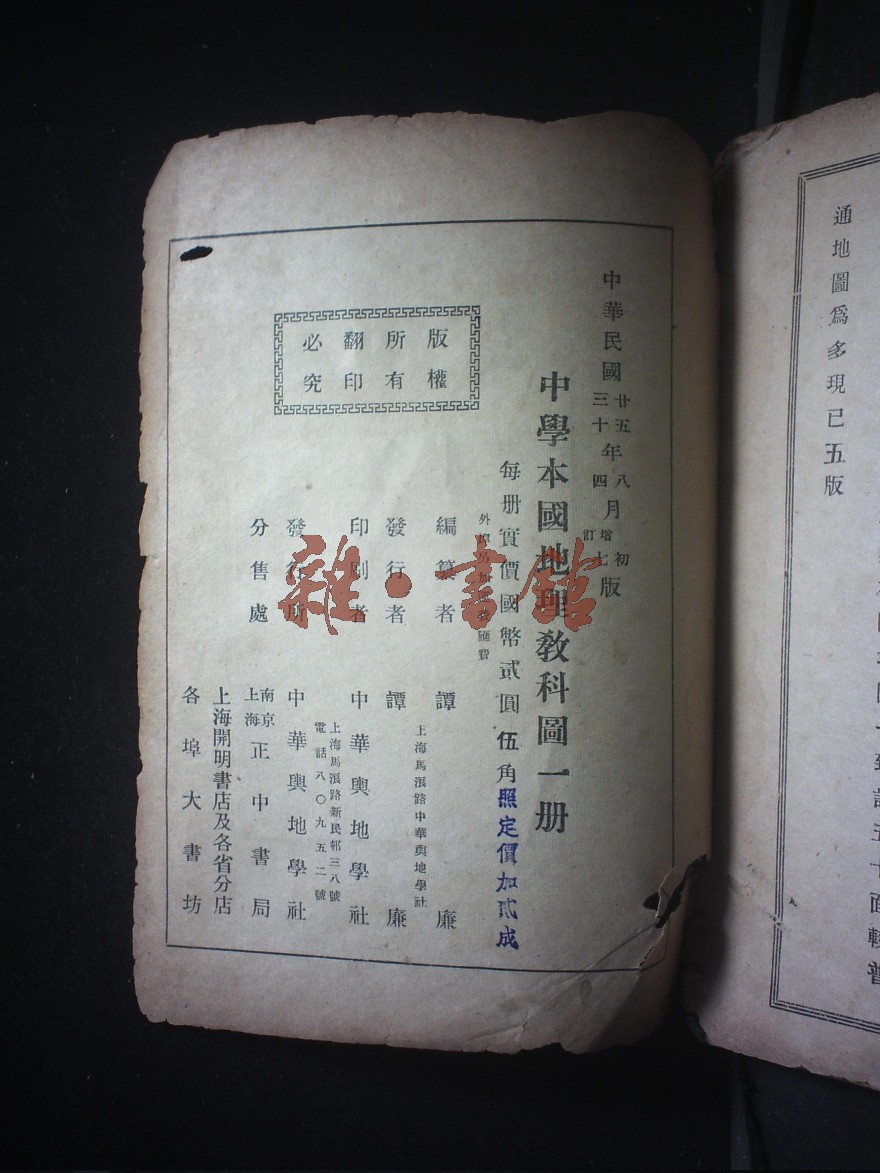 中華民國廿五年八月初版
三十四增訂七
中學本國地理教科圖一册
每册實價國幣貳圓伍角照定價加貳成
版權
所有
翻印
必究
編纂者 譚廉
上海馬浪路中華輿地學社
發行者 譚廉
印刷者 中華輿地學社
上海馬浪路新民邨三八號
電話八〇九五二號
發行所 中華輿地學社
分售處
南京
上海
正中書局
上海開明書店及各省分店
各埠大書坊
雜·書館
通地圖爲多現已五版